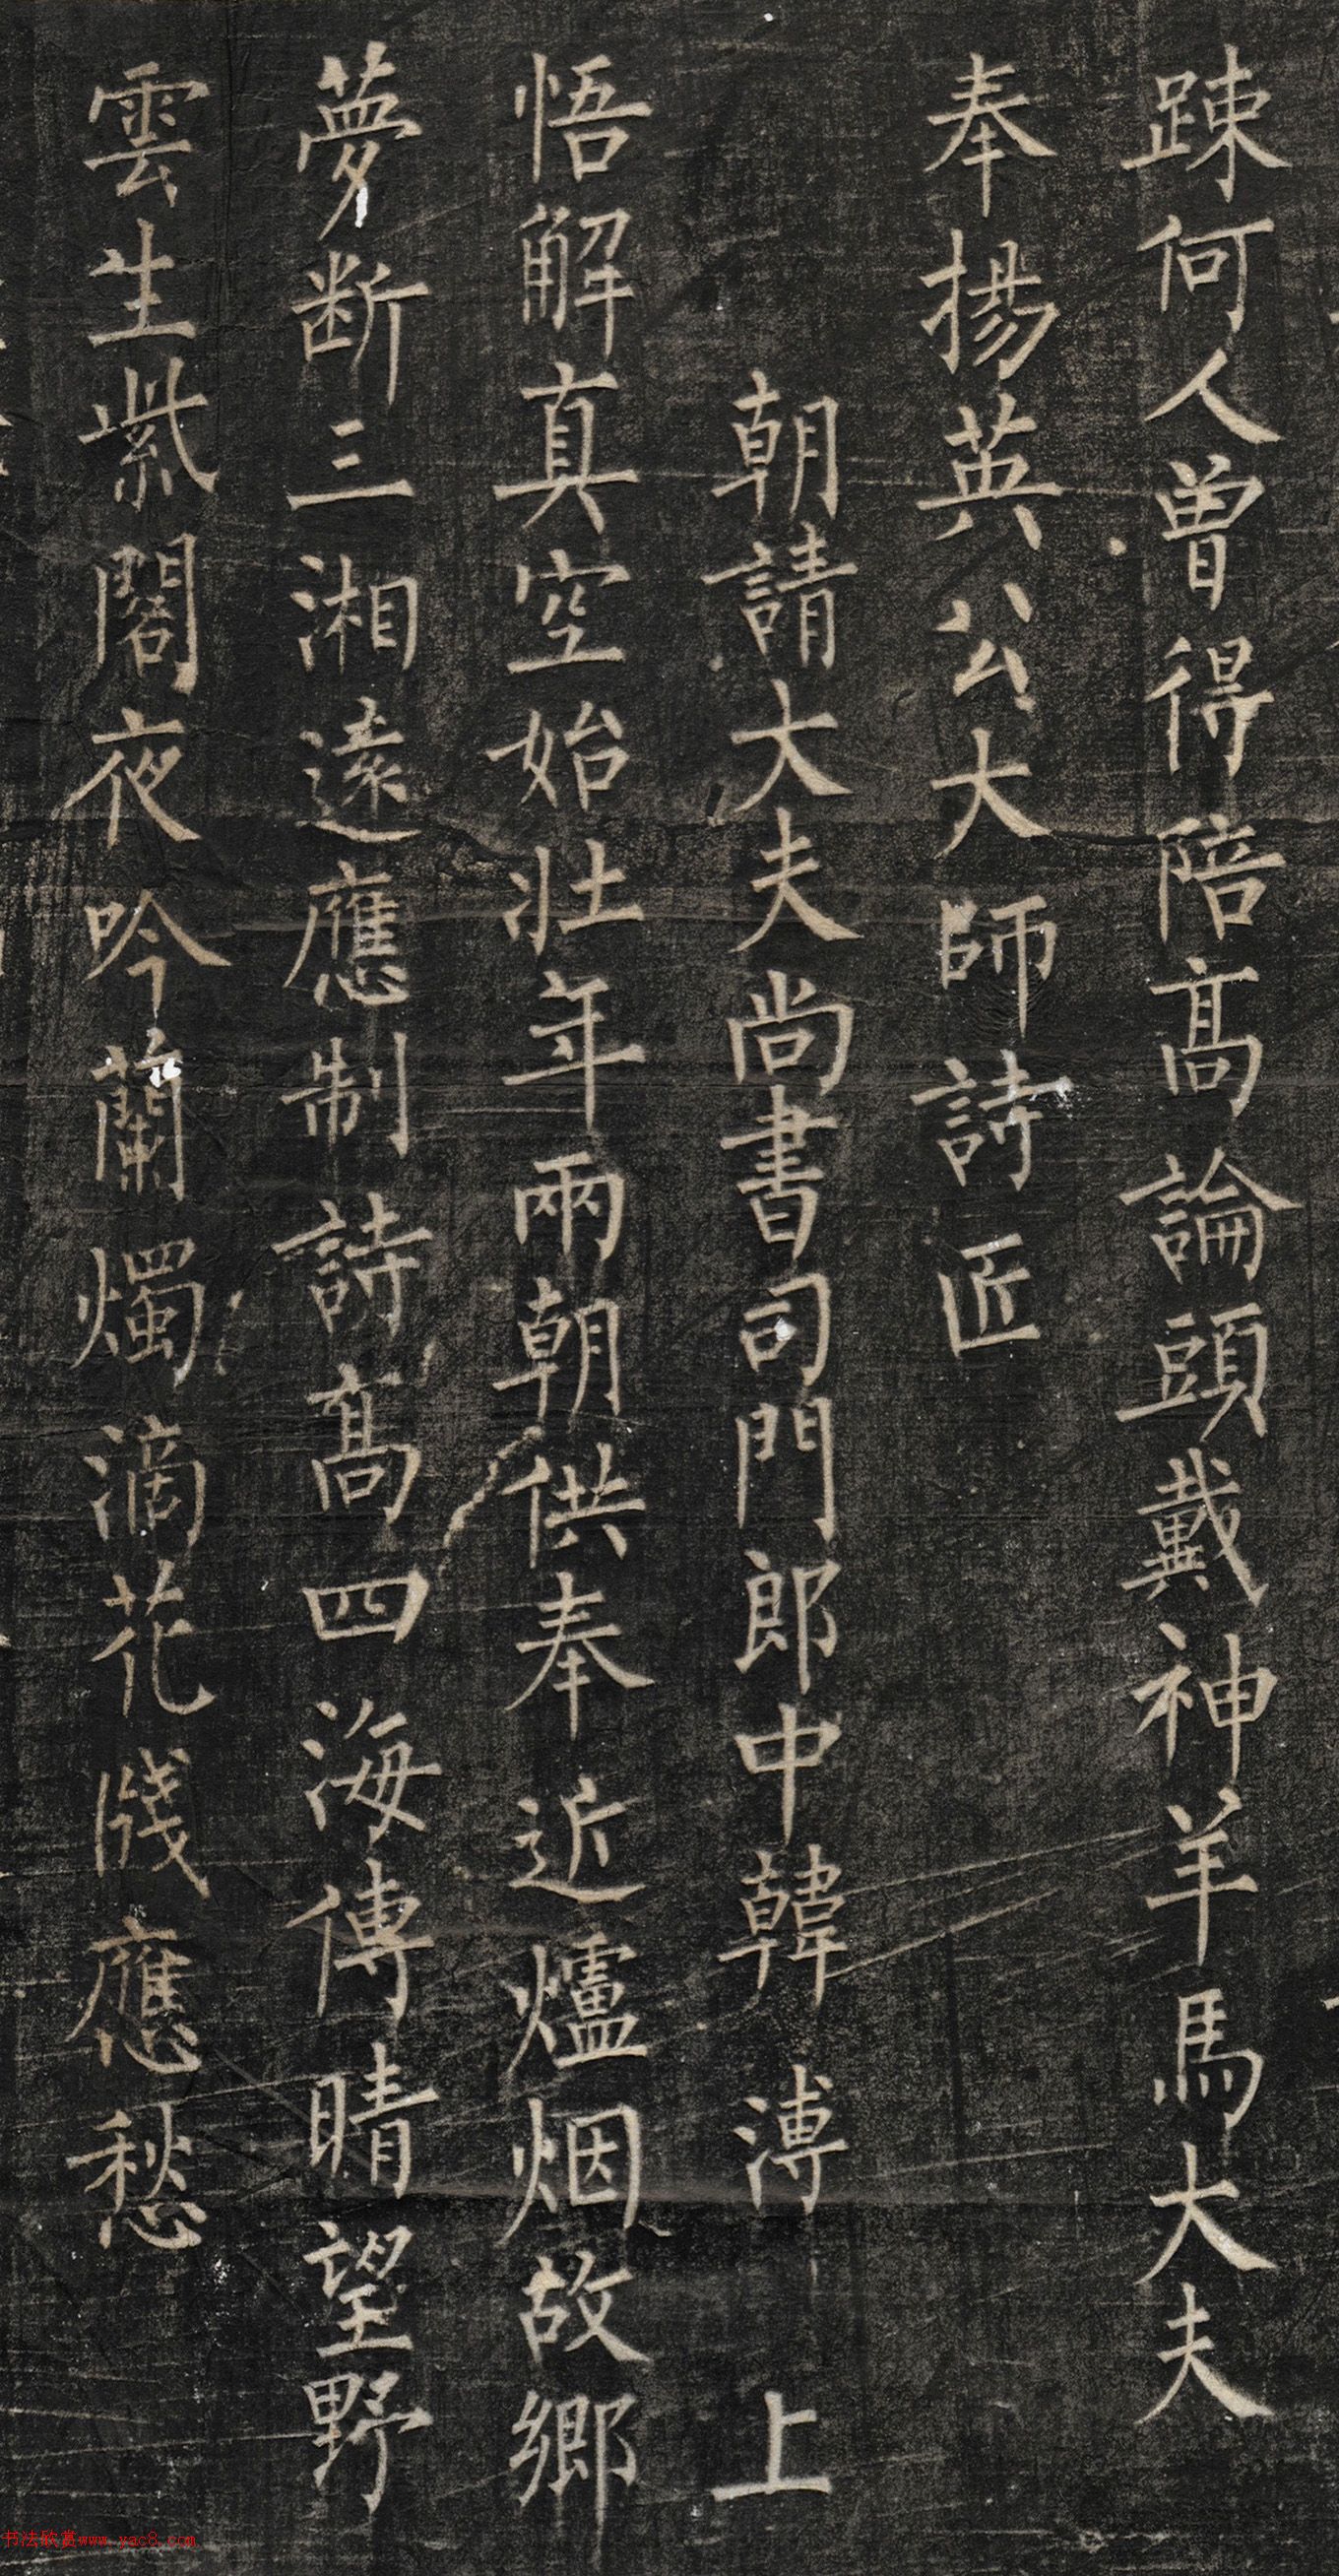 踈何人曾得陪高論頭戴神羊馬大夫
奉揚英公大師詩匠
朝請大夫尚書司門郎中韓溥上
悟解真空始壯年兩朝供奉近爐烟故鄉
夢断三湘遠應制詩高四海傳晴望野
雲生紫閣夜吟蘭燭滴花牋應愁
书法欣赏www.yac8.com